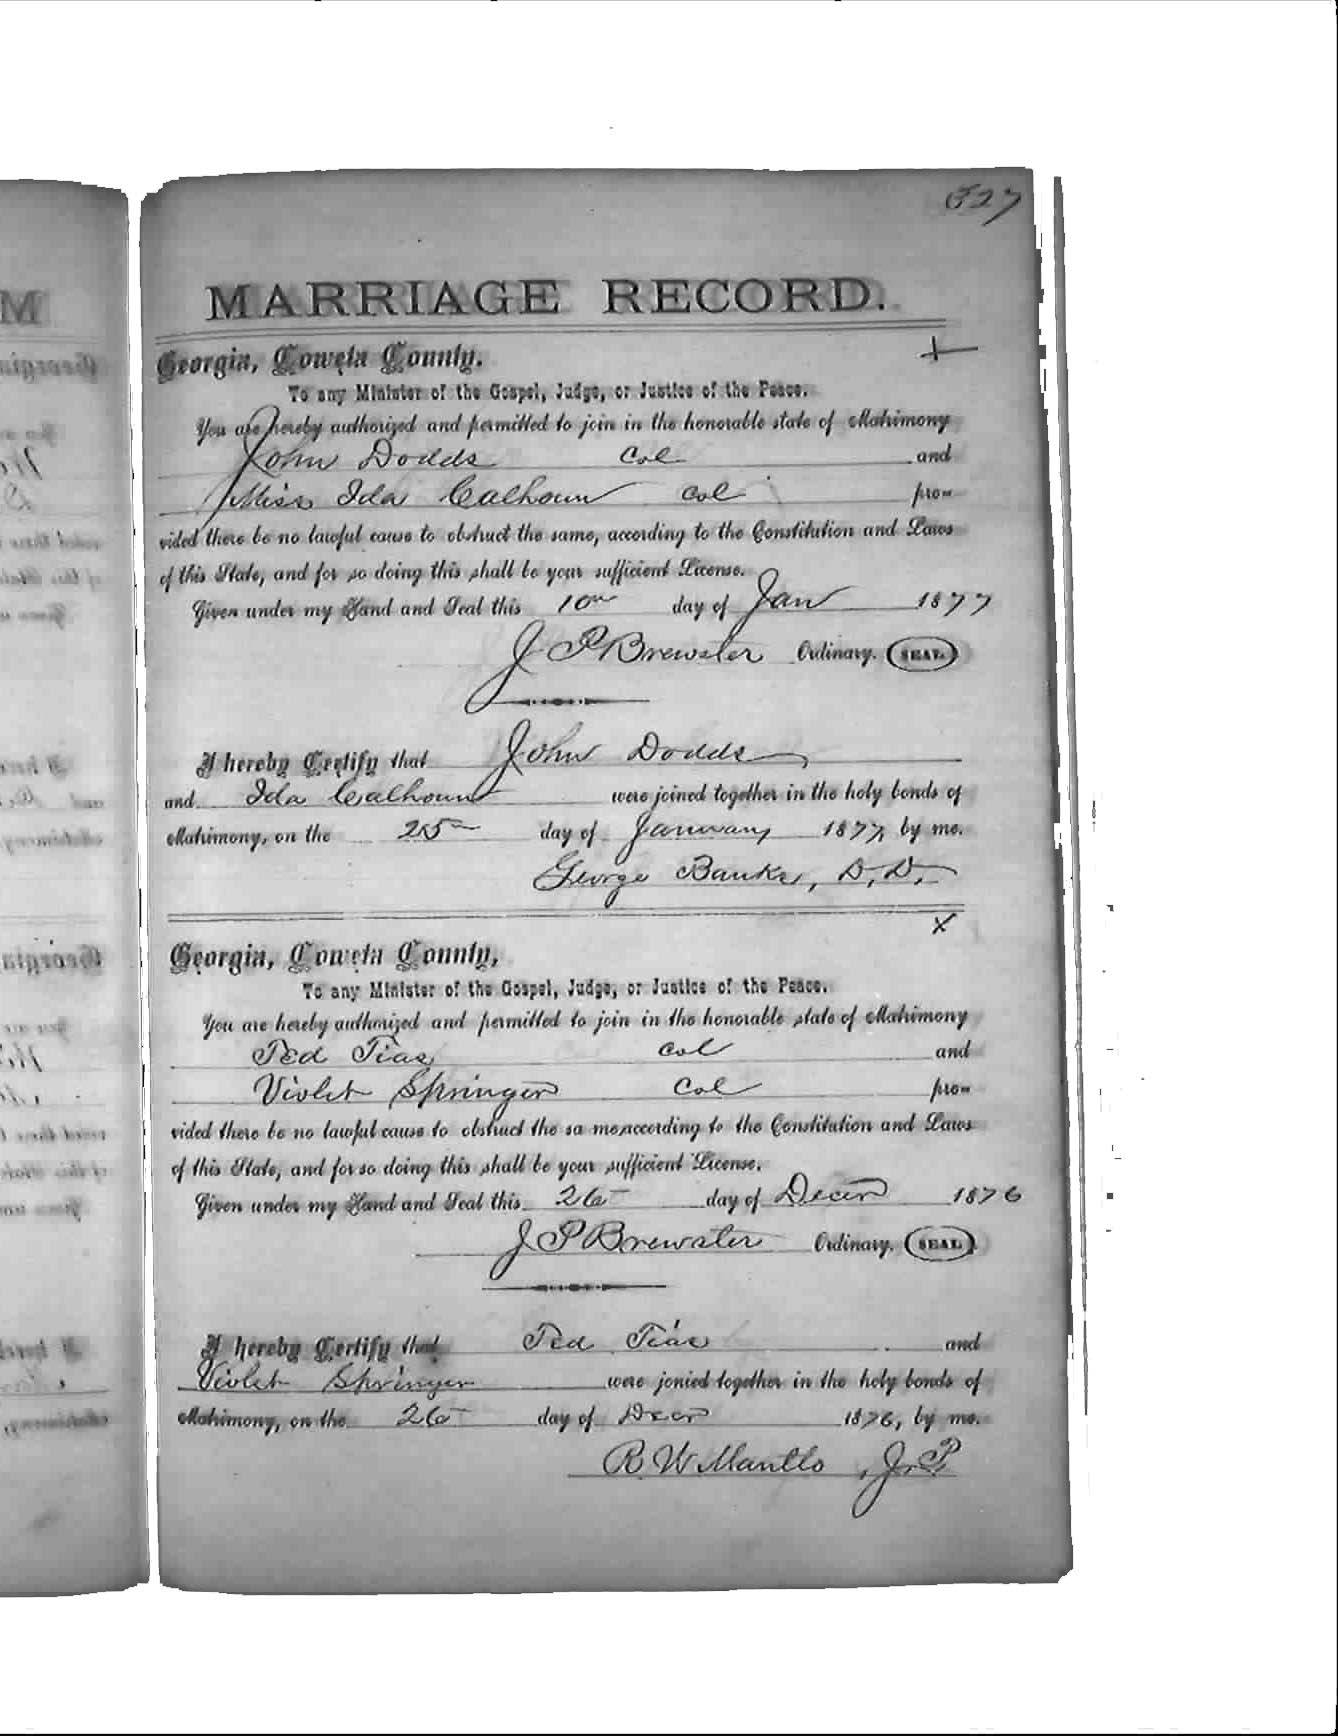 527
MARRIAGE RECORD.
Georgia, Coweta County.
To any Minister of the Gospel, Judge, or Justice of the Peace.
You are hereby authorized and permitted to join in the honorable state of Matrimony
John Dodds Col and
Miss Ida Calhoun Col pro-
vided there be no lawful cause to obstruct the same, according to the Constitution and Laws
of this State, and for so doing this shall be your sufficient License.
Given under my Hand and Seal this 10th day of Jan 1877
J P Brewster Ordinary. SEAL.
I hereby Certify that John Dodds
and Ida Calhoun were joined together in the holy bonds of
Matrimony, on the 25th day of January 1877, by me.
George Banks, D.D.
X
Georgia, Coweta County,
To any Minister of the Gospel, Judge, or Justice of the Peace.
You are hereby authorized and permitted to join in the honorable state of Matrimony
Ted Tias Col and
Violet Springer Col pro-
vided there be no lawful cause to obstruct the sa me,according to the Constitution and Laws
of this State, and for so doing this shall be your sufficient License.
Given under my Hand and Seal this 26 day of Decer 1876
J P Brewster Ordinary. SEAL.
I hereby Certify that Ted Tias and
Violet Springer were jonied together in the holy bonds of
Matrimony, on the 26 day of Decr 1876, by me.
R W Mantlo, J.P.